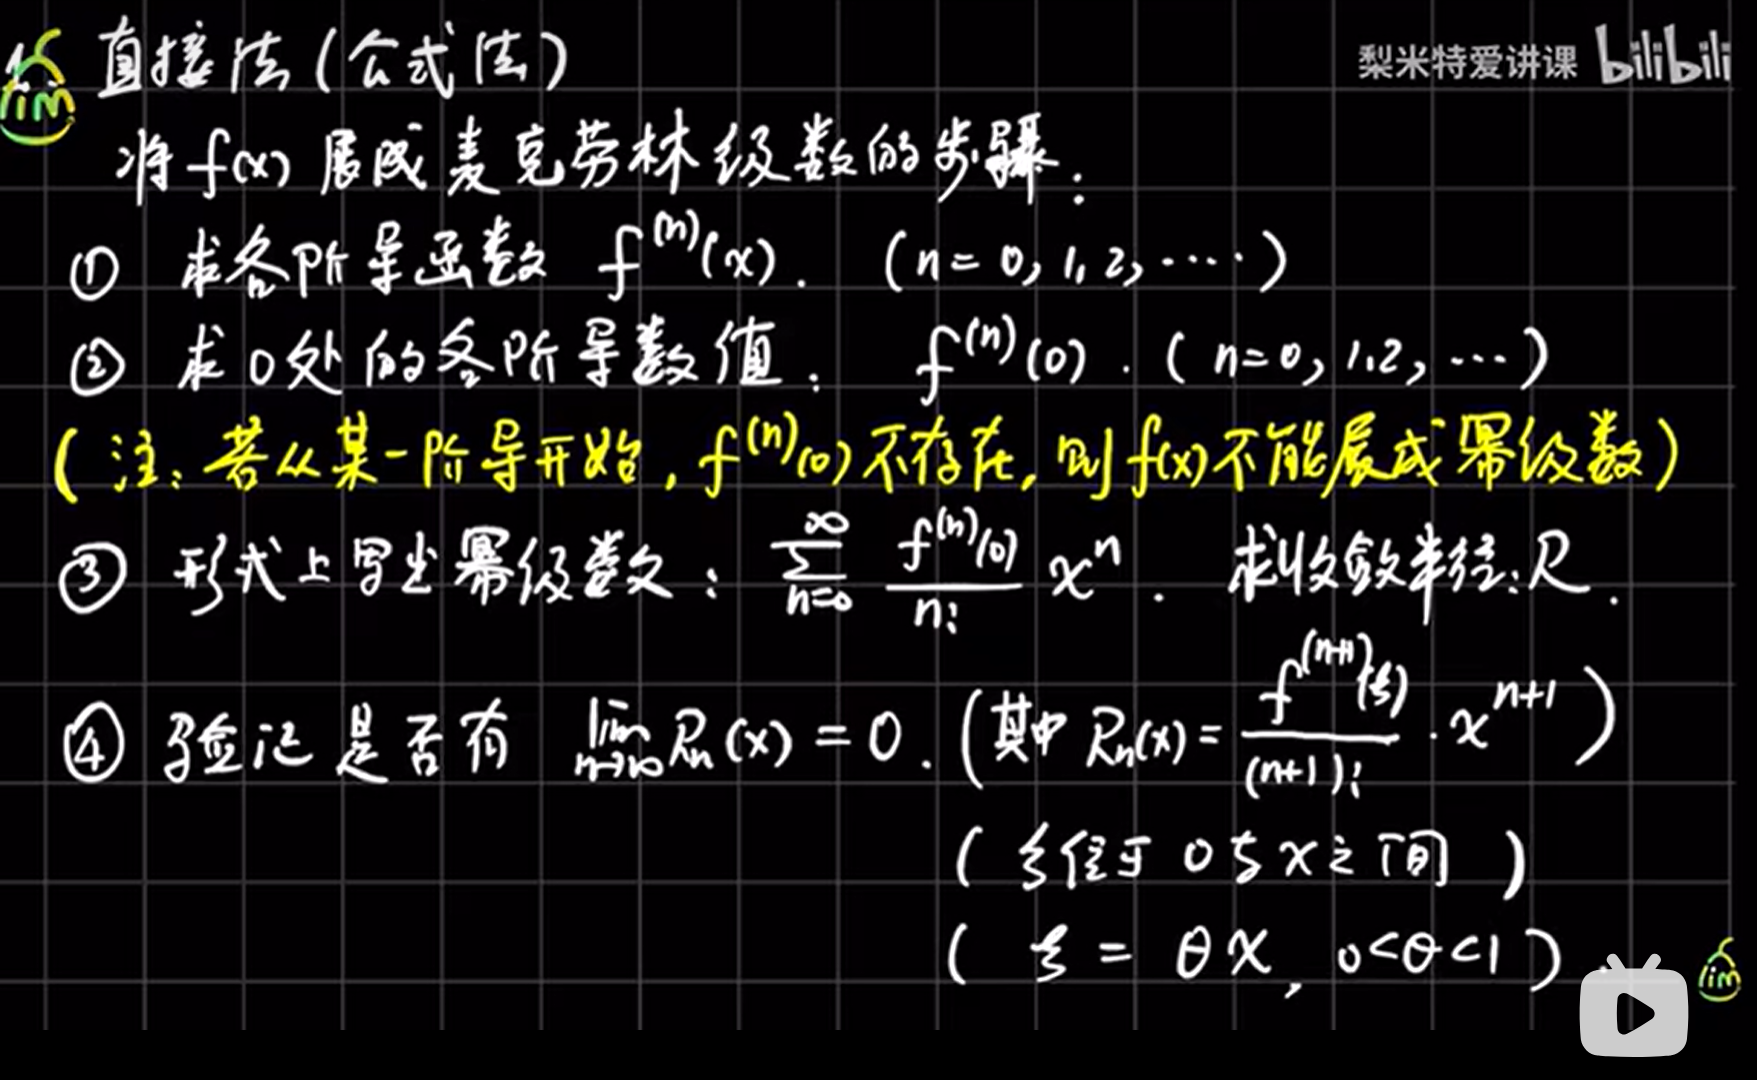 1. 直接法(公式法)
梨米特爱讲课 bilibili
lim
将 f(x) 展成麦克劳林级数的步骤:
① 求各阶导函数 f⁽ⁿ⁾(x). (n = 0, 1, 2, ‥‥)
② 求 0 处的各阶导数值: f⁽ⁿ⁾(0). (n=0, 1,2, …)
(注: 若从某一阶导开始, f⁽ⁿ⁾(0) 不存在, 则 f(x) 不能展成幂级数)
③ 形式上写出幂级数: ∑_{n=0}^{∞} f⁽ⁿ⁾(0)/n! xⁿ. 求收敛半径:R.
④ 验证是否有 lim_{n→∞} Rₙ(x) = 0. (其中 Rₙ(x) = f⁽ⁿ⁺¹⁾(ξ)/(n+1)! · xⁿ⁺¹)
(ξ位于 0与x之间)
(ξ = θx, 0<θ<1).
lim